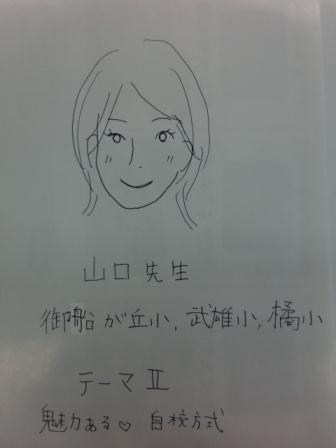 山口先生
御船が丘小, 武雄小, 橘小
テーマⅡ
魅力ある♡ 自校方式